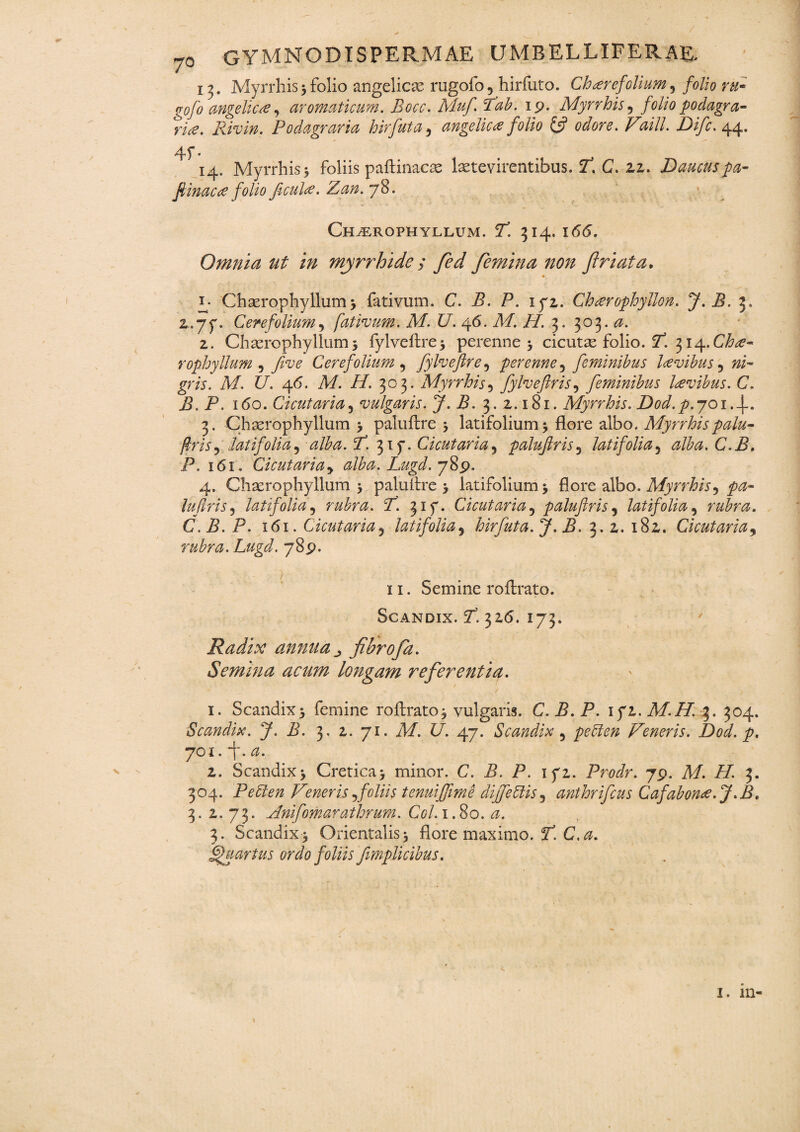 70 GYMNODISPERMAE UMBELLIFERAE.
13. Myrrhis; folio angelicæ rugoſo, hirſuto. Chærefolium, folio ru-
goſo angelicæ, aromaticum. Bocc. Muſ. Tab. 19. Myrrhis, folio podagra-
riæ. Rivin. Podagraria hirſuta, angelicæ folio & odore. Vaill. Diſc. 44.
45.
14. Myrrhis; foliis paſtinacæ lætevirentibus. T. C. 22. Daucus pa-
ſtinacæ folio ſiculæ. Zan. 78.
CHÆROPHYLLUM. T. 314. 166.
Omnia ut in myrrhide; ſed ſemina non ſtriata.
1. Chærophyllum; ſativum. C. B. P. 152. Chærophyllon. J. B. 3.
2. 75. Cerefolium, ſativum. M. U. 46. M. H. 3. 303. a.
2. Chærophyllum; ſylveſtre; perenne; cicutæ folio. T. 314. Chæ-
rophyllum, ſive Cerefolium, ſylveſtre, perenne, ſeminibus lævibus, ni-
gris. M. U. 46. M. H. 303. Myrrhis, ſylveſtris, ſeminibus lævibus. C.
B. P. 160. Cicutaria, vulgaris. J. B. 3. 2. 181. Myrrhis. Dod. p. 701. ⸸.
3. Chærophyllum; paluſtre; latifolium; flore albo. Myrrhis palu-
ſtris, latifolia, alba. T. 315. Cicutaria, paluſtris, latifolia, alba. C. B.
P. 161. Cicutaria, alba. Lugd. 789.
4. Chærophyllum; paluſtre; latifolium; flore albo. Myrrhis, pa-
luſtris, latifolia, rubra. T. 315. Cicutaria, paluſtris, latifolia, rubra.
C. B. P. 161. Cicutaria, latifolia, hirſuta. J. B. 3. 2. 182. Cicutaria,
rubra. Lugd. 789.
11. Semine roſtrato.
SCANDIX. T. 326. 173.
Radix annua, fibroſa.
Semina acum longam referentia.
1. Scandix; ſemine roſtrato; vulgaris. C. B. P. 152. M. H. 3. 304.
Scandix. J. B. 3. 2. 71. M. U. 47. Scandix, pecten Veneris. Dod. p.
701. †. a.
2. Scandix; Cretica; minor. C. B. P. 152. Prodr. 79. M. H. 3.
304. Pecten Veneris, foliis tenuiſſimè diſſectis, anthriſcus Caſabonæ. J. B.
3. 2. 73. Aniſomarathrum. Col. 1. 80. a.
3. Scandix; Orientalis; flore maximo. T. C. a.
Quartus ordo foliis ſimplicibus.
1. in-